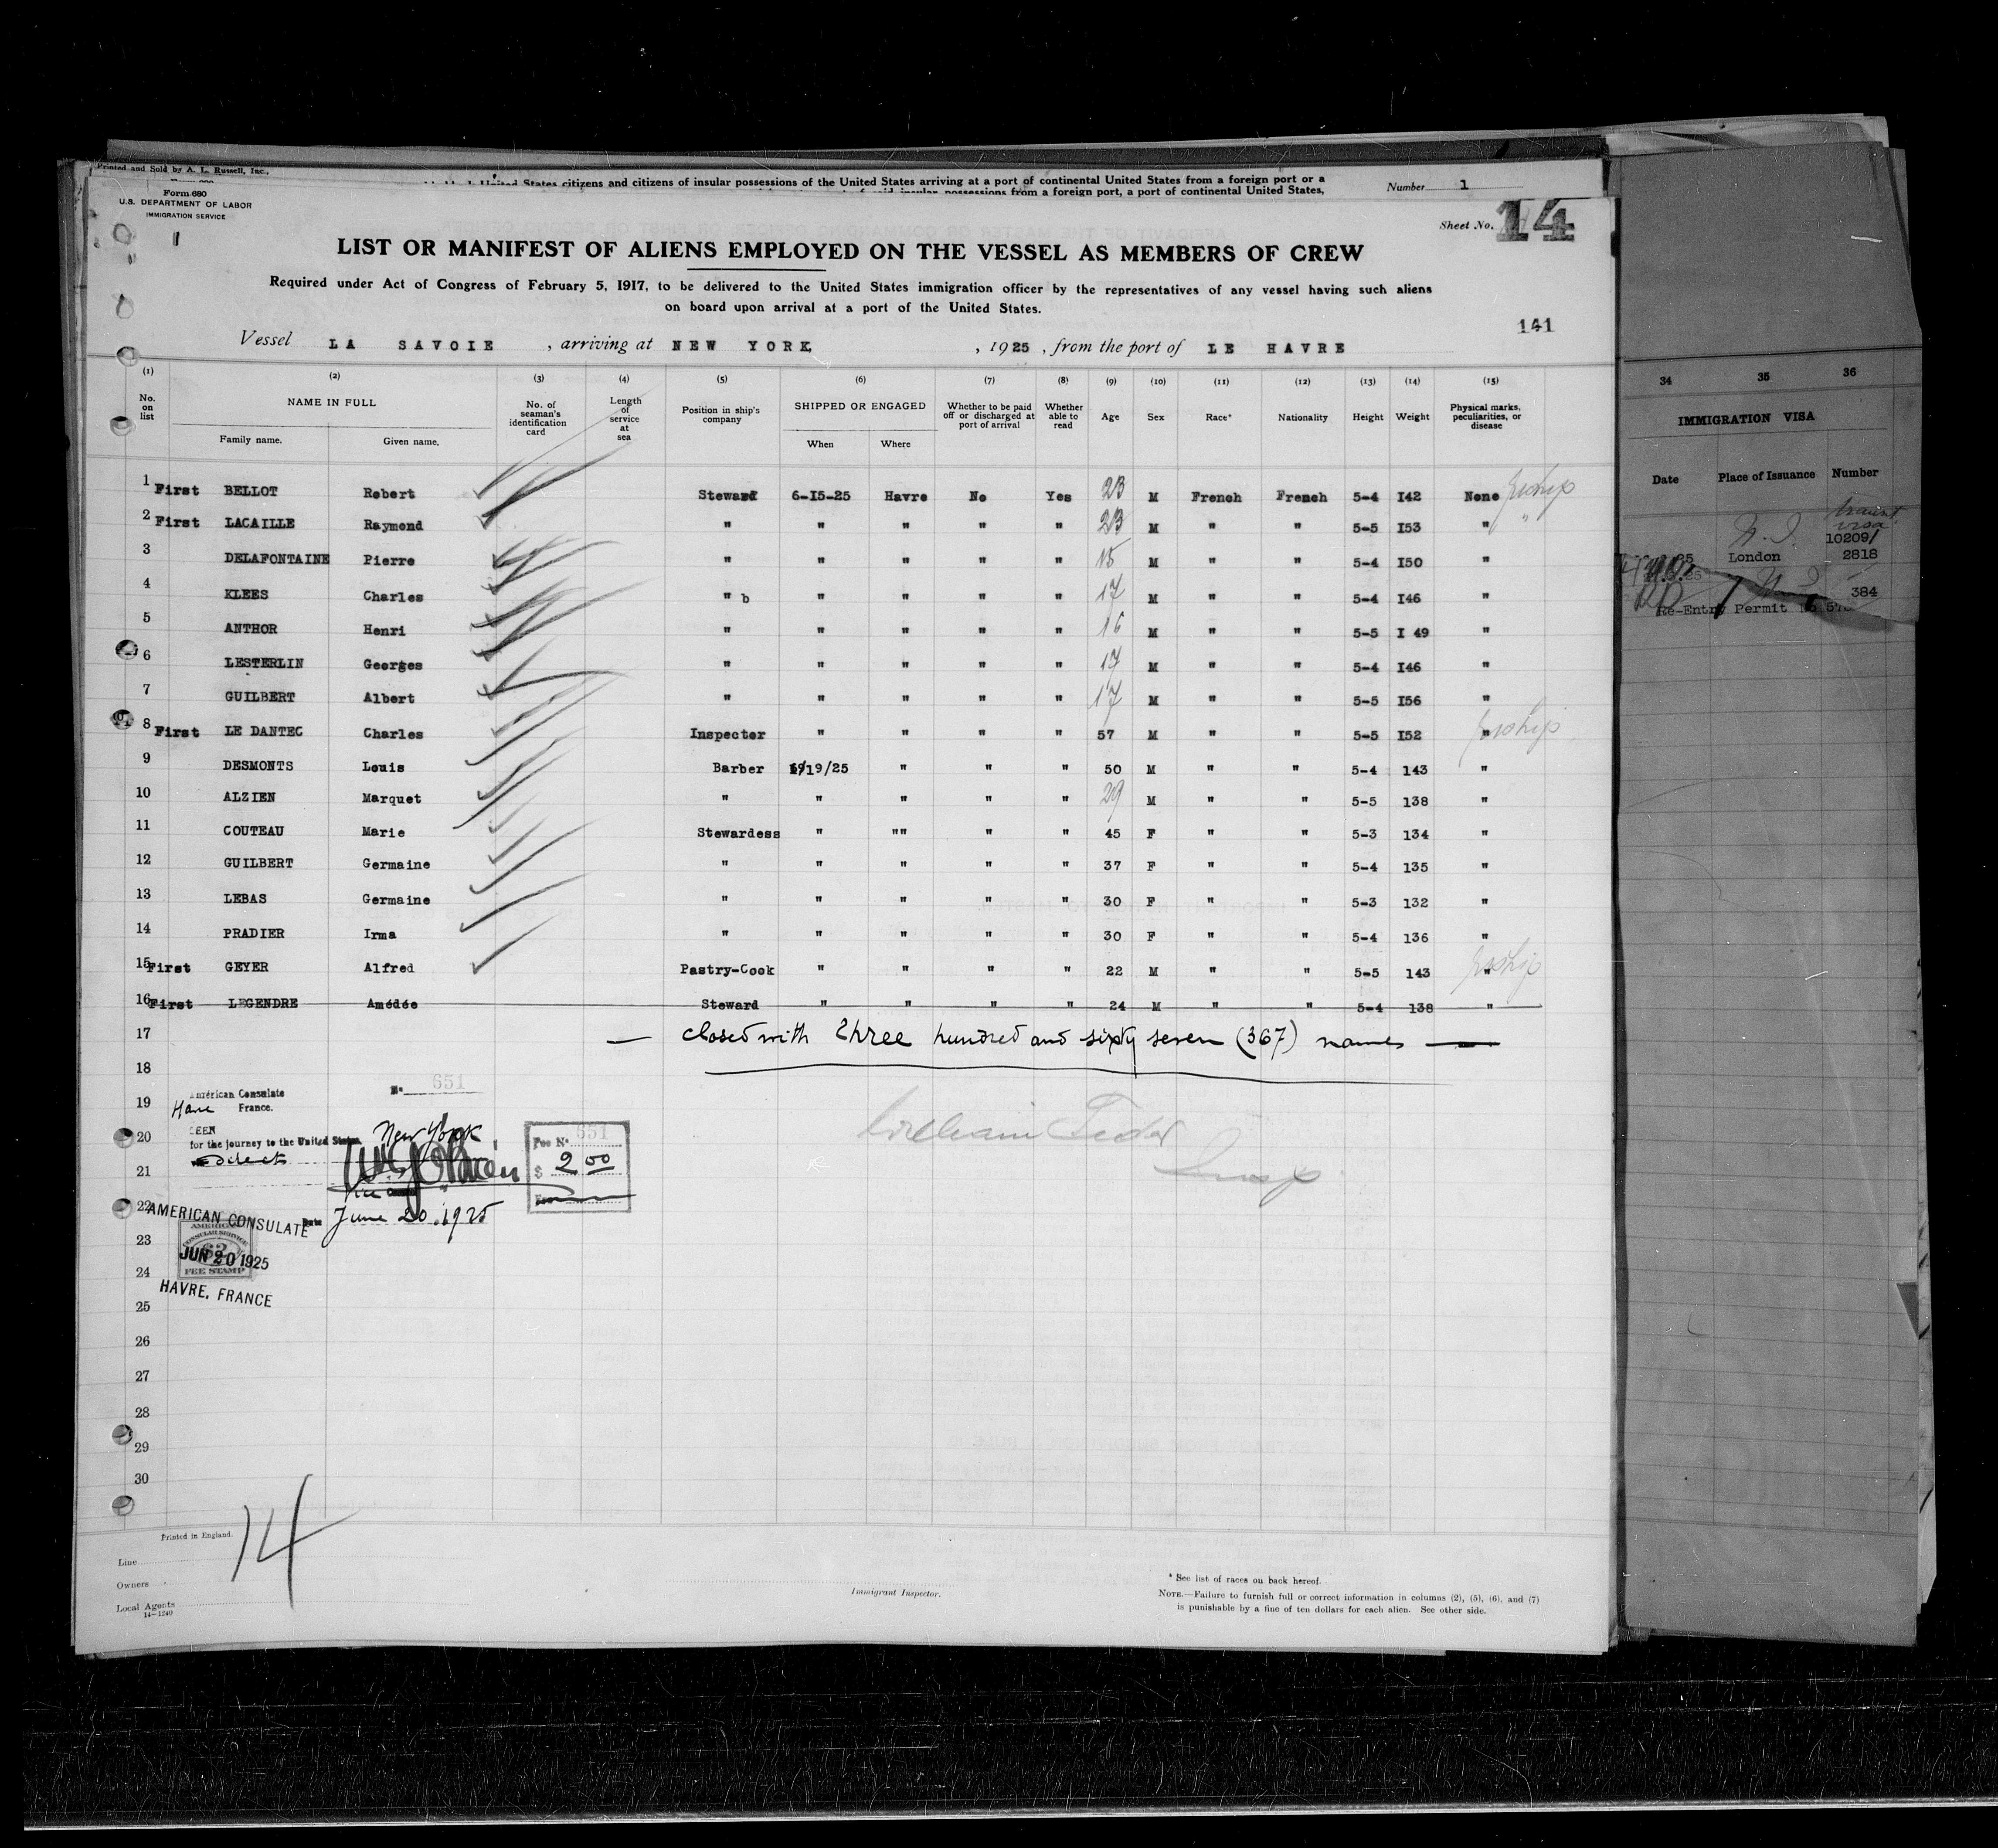 Printed and Sold by A. L. Russell, Inc.,
United States citizens and citizens of insular possessions of the United States arriving at a port of continental United States from a foreign port or a
insular possessions from a foreign port, a port of continental United States,
Number 1
Form 680
U.S. DEPARTMENT OF LABOR
IMMIGRATION SERVICE
Sheet No. 14
LIST OR MANIFEST OF ALIENS EMPLOYED ON THE VESSEL AS MEMBERS OF CREW
Required under Act of Congress of February 5, 1917, to be delivered to the United States immigration officer by the representatives of any vessel having such aliens
on board upon arrival at a port of the United States.
141
Vessel LA SAVOIE , arriving at NEW YORK , 1925 , from the port of LE HAVRE
(1) (2) (3) (4) (5) (6) (7) (8) (9) (10) (11) (12) (13) (14) (15)
No. on list NAME IN FULL Family name. Given name. No. of seaman's identification card Length of service at sea Position in ship's company SHIPPED OR ENGAGED When Where Whether to be paid off or discharged at port of arrival Whether able to read Age Sex Race* Nationality Height Weight Physical marks, peculiarities, or disease
1 First BELLOT Robert Steward 6-15-25 Havre No Yes 23 M French French 5-4 142 None
2 First LACAILLE Raymond " " " " " 23 M " " 5-5 153 "
3 DELAFONTAINE Pierre " " " " " 15 M " " 5-4 150 "
4 KLEES Charles " b " " " " 17 M " " 5-4 146 "
5 ANTHOR Henri " " " " " 16 M " " 5-5 I 49 "
6 LESTERLIN Georges " " " " " 17 M " " 5-4 146 "
7 GUILBERT Albert " " " " " 17 M " " 5-5 156 "
8 First LE DANTEC Charles Inspector " " " " 57 M " " 5-5 152 "
9 DESMONTS Louis Barber 6/19/25 " " " 50 M " " 5-4 143 "
10 ALZIEN Marquet " " " " " 29 M " " 5-5 138 "
11 COUTEAU Marie Stewardess " "" " " 45 F " " 5-3 134 "
12 GUILBERT Germaine " " " " " 37 F " " 5-4 135 "
13 LEBAS Germaine " " " " " 30 F " " 5-3 132 "
14 PRADIER Irma " " " " " 30 F " " 5-4 136 "
15 First GEYER Alfred Pastry-Cook " " " " 22 M " " 5-5 143 "
16 First LEGENDRE Amédée Steward " " " " 24 M " " 5-4 138 "
17 — closed with three hundred and sixty seven (367) names —
18
19
20
21
22
23
24
25
26
27
28
29
30
American Consulate No. 651
Havre France.
SEEN
for the journey to the United States
New York
Fee No. 651
$ 2 00
Date June 20, 1925
AMERICAN CONSULATE
AMERICAN
CONSULAR SERVICE
FEE STAMP
JUN 20 1925
HAVRE, FRANCE
William
Insp
14
Printed in England.
Line
Owners
Local Agents
14-1240
Immigrant Inspector.
* See list of races on back hereof.
NOTE.—Failure to furnish full or correct information in columns (2), (5), (6), and (7)
is punishable by a fine of ten dollars for each alien. See other side.
34 35 36
IMMIGRATION VISA
Date Place of Issuance Number
transit
visa
10209/
London 2818
384
Re-Entry Permit